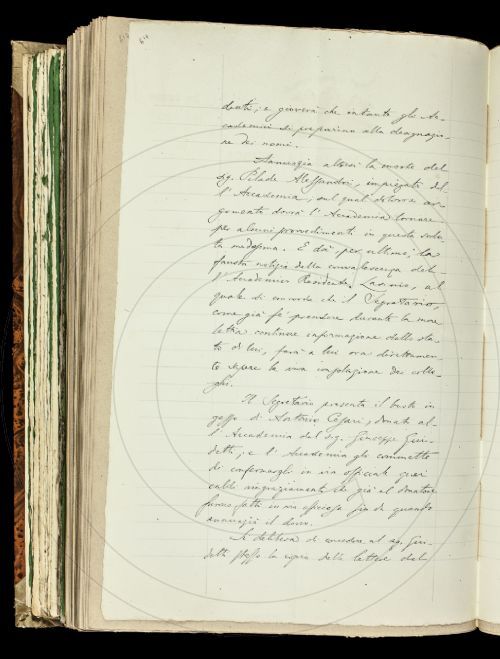 denti; e gioverà che intanto gli Ac-
cademici si preparino alla designazio-
ne dei nomi.
Annunzia altresì la morte del
sig. Pilade Alessandri, impiegato del-
l'Accademia, sul qual doloroso ar-
gomento dovrà l'Accademia tornare
per alcuni provvedimenti in questa sedu-
ta medesima. E dà per ultimo la
fausta notizia della convalescenza del-
l'Accademico Residente, al
quale di concorde che il Segretario,
come già fe' prendere durante la
continue informazioni dello sta-
to di lui, farà a lui ora direttamen-
te sapere la viva consolazione dei colle-
ghi.
Il Segretario presenta il busto in
gesso di Antonio Cesari, donato al-
l'Accademia dal sig. Giuseppe Gui-
detti; e l'Accademia gli commette
di confermargli in via officiale quei
caldi ringraziamenti che già al donatore
furono fatti in via officiosa fin da quando
annunziò il dono.
Si delibera di concedere al sig. Gui-
detti stesso la copia delle lettere del